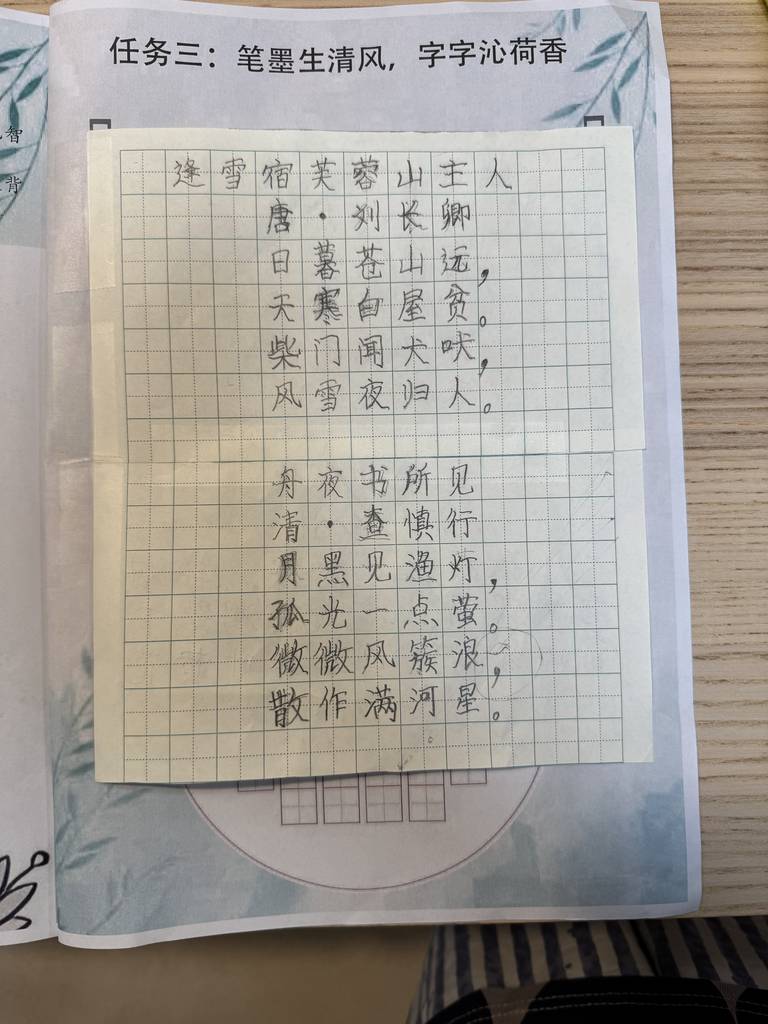 任务三：笔墨生清风，字字沁荷香
智
背
逢雪宿芙蓉山主人
唐·刘长卿
日暮苍山远，
天寒白屋贫。
柴门闻犬吠，
风雪夜归人。
舟夜书所见
清·查慎行
月黑见渔灯，
孤光一点萤。
微微风簇浪，
散作满河星。